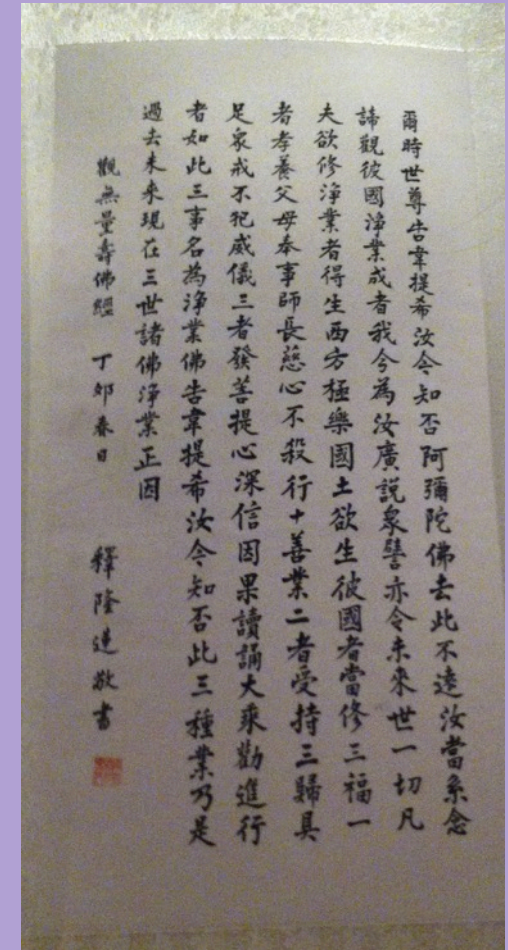 爾時世尊告韋提希汝今知否阿彌陀佛去此不遠汝當系念
諦觀彼國淨業成者我今為汝廣説衆譬亦令未來世一切凡
夫欲修淨業者得生西方極樂國土欲生彼國者當修三福一
者孝養父母奉事師長慈心不殺行十善業二者受持三歸具
足衆戒不犯威儀三者發菩提心深信因果讀誦大乘勸進行
者如此三事名為淨業佛告韋提希汝今知否此三種業乃是
過去未來現在三世諸佛淨業正因
觀無量壽佛經 丁卯春日 釋隆連敬書